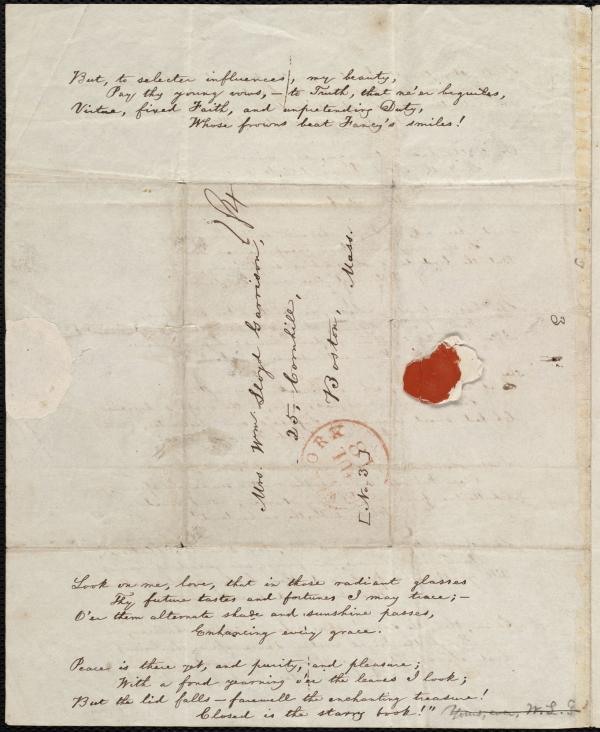 But, to selecter influences, my beauty,
Pay thy young vows, — to Truth, that ne'er beguiles,
Virtue, fixed Faith, and unpretending Duty,
Whose frowns beat Fancy's smiles!
Mrs. Wm. Lloyd Garrison,
25, Cornhill,
Boston, Mass.
[No. 3]
YORK
JUL
18
3
Look on me, love, that in those radiant glasses
Thy future tastes and fortunes I may trace; —
O'er them alternate shade and sunshine passes,
Enhancing every grace.
Peace is there yet, and purity, and pleasure;
With a fond yearning o'er the leaves I look;
But the lid falls — farewell the enchanting treasure!
Closed is the starry book!" Yours, ever, W. L. G.